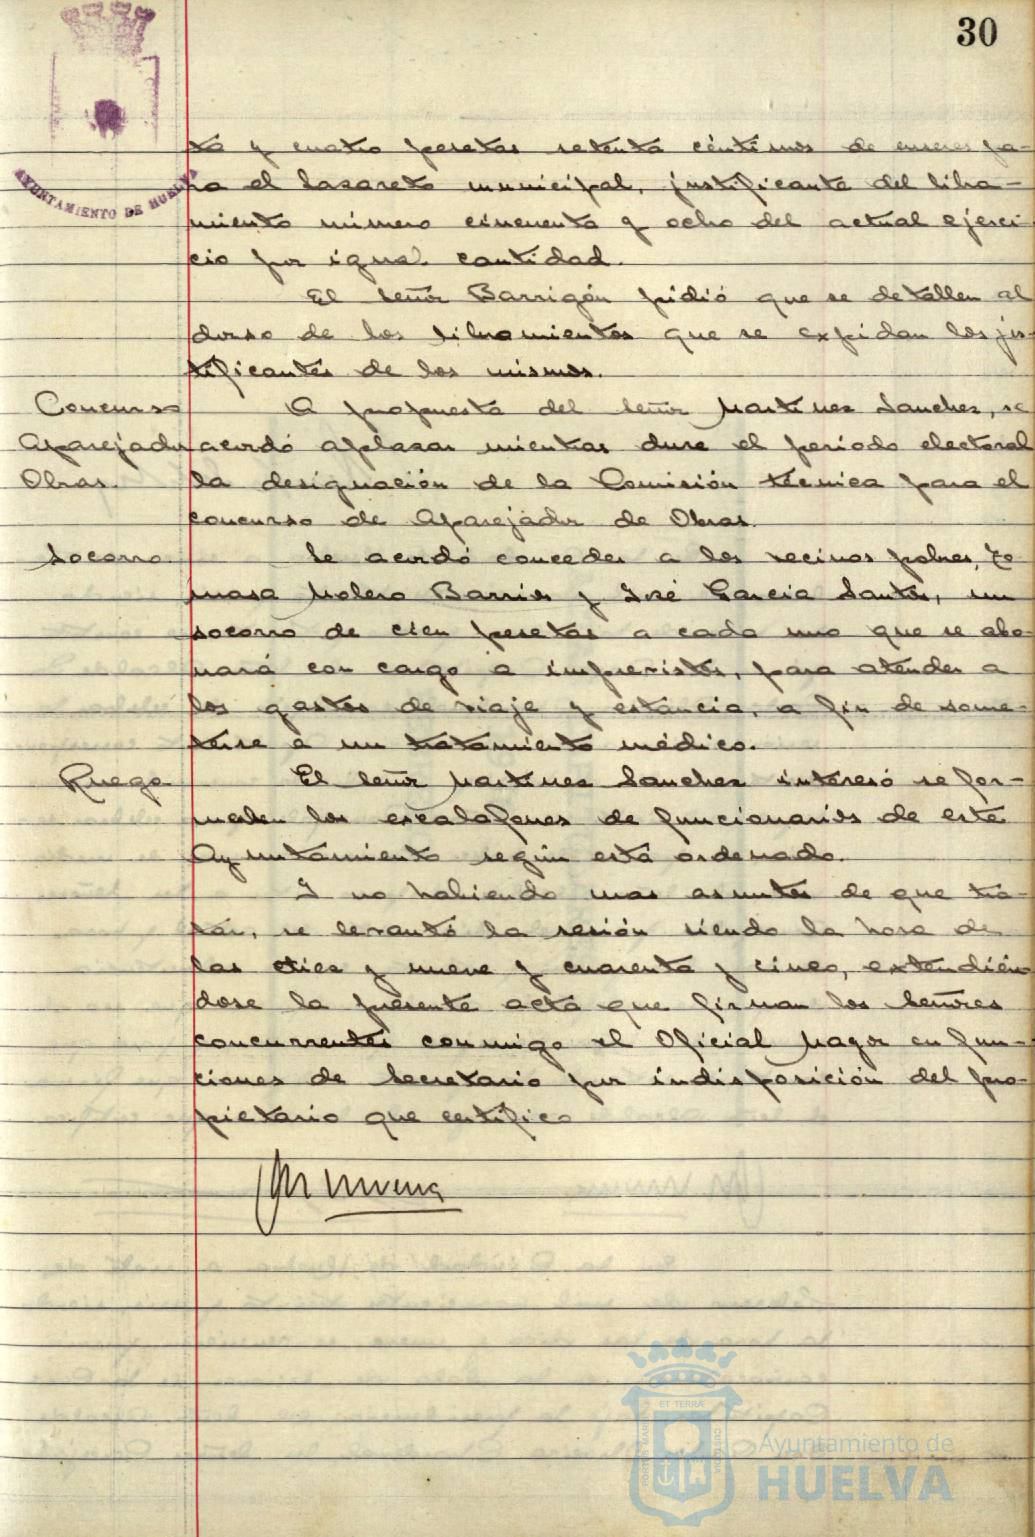 30
AYUNTAMIENTO DE HUELVA
ta y cuatro pesetas setenta céntimos de enseres pa-
ra el Lazareto municipal, justificante del libra-
miento número cincuenta y ocho del actual ejerci-
cio por igual cantidad.
El señor Barrigón pidió que se detallen al
dorso de los libramientos que se expidan los jus-
tificantes de los mismos.
Concurso A propuesta del señor Martinez Sanchez, se
Aparejador acordó aplazar mientras dure el período electoral
Obras. la designación de la Comisión técnica para el
concurso de Aparejador de Obras.
Socorro Se acordó conceder a los vecinos pobres, To-
masa Molero Barrios y José Garcia Santos, un
socorro de cien pesetas a cada uno que se abo-
nará con cargo a imprevistos, para atender a
los gastos de viaje y estáncia, a fin de some-
terse a un tratamiento médico.
Ruego El señor Martinez Sanchez interesó se for-
malen los escalafones de funcionarios de este
Ayuntamiento según está ordenado.
Y no habiendo mas asuntos de que tra-
tar, se levantó la sesión siendo la hora de
las diez y nueve y cuarenta y cinco, extendién
dose la presente acta que firman los Señores
concurrentes conmigo el Oficial Mayor en fun-
ciones de Secretario por indisposición del pro-
pietario que certifico
ET TERRÆ
PORTUS MARIS
CUSTODIA
Ayuntamiento de
HUELVA